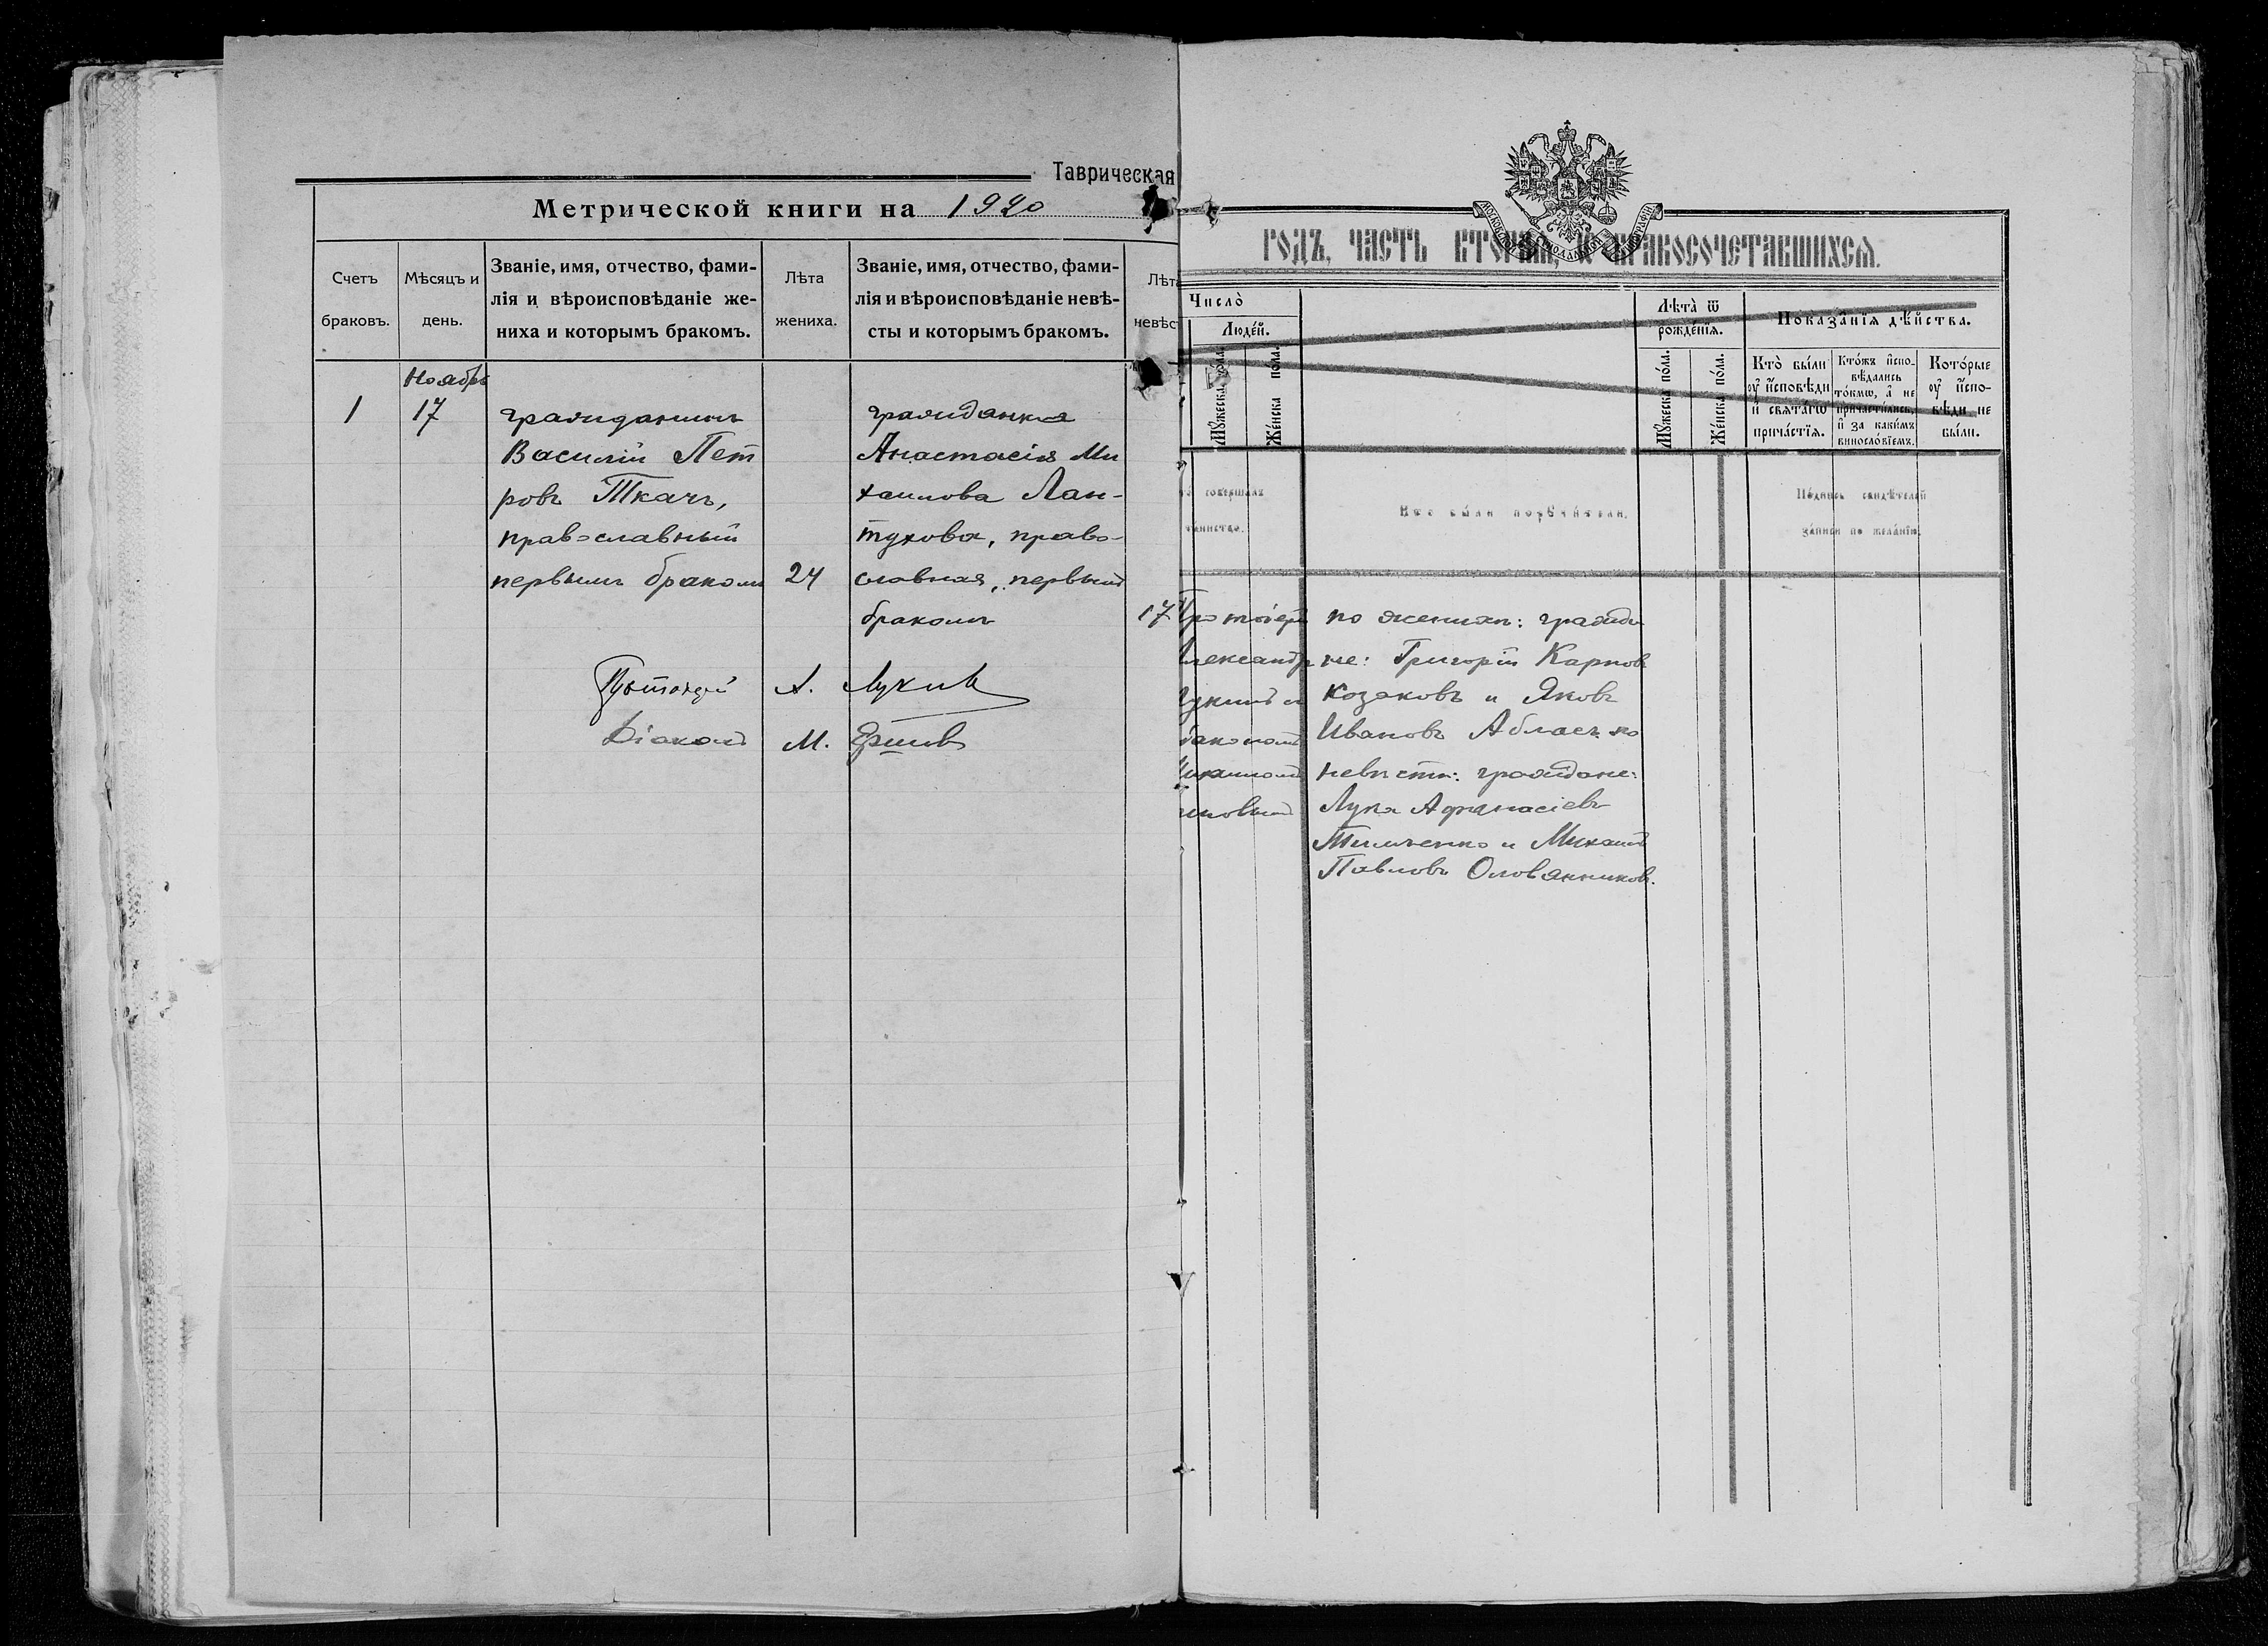 Таврическая
Метрической книги на 1920
Счетъ браковъ.
Мѣсяцъ и день.
Званіе, имя, отчество, фами-
лія и вѣроисповѣданіе же-
ниха и которымъ бракомъ.
Лѣта жениха.
Званіе, имя, отчество, фами-
лія и вѣроисповѣданіе невѣ-
сты и которымъ бракомъ.
Лѣта
невѣс
Ноябрь
1
17
гражданинъ
Василій Пет
ровъ Ткачъ,
православный
первымъ бракомъ
24
гражданка
Анастасія Ми
хаилова Лан-
тухова, право-
славная, первымъ
бракомъ
17
А. Лукинъ
Діаконъ М.
годъ, часть вторая, бракосочетавшихся.
Число̀
Людей.
Мꙋжеска пола.
Женска пола.
Лѣта̀ ѿ рожденїѧ.
Мꙋжеска пола.
Женска пола.
Показанїѧ дѣйства.
Кто̀ были
оу҆ и҆сповѣди
и҆ свѧтагѡ
причастїѧ.
Ктожъ и҆спо-
вѣдались
токмѡ, а҆ не
причастились,
и҆ за какимъ
винословїемъ.
Которые
оу҆ и҆спо-
вѣди не
были.
совершалъ
таинство.
Кто были поручители.
Подпись свидѣтелей
записи по желанію.
Протоіерей
Александръ
по женихѣ: гражда
не: Григорій Карповъ
Козаковъ и Яковъ
Ивановъ Аблаев по
невѣстѣ: граждане:
Лука Афанасіевъ
Тимченко и Михаилъ
Павловъ Оловянниковъ.